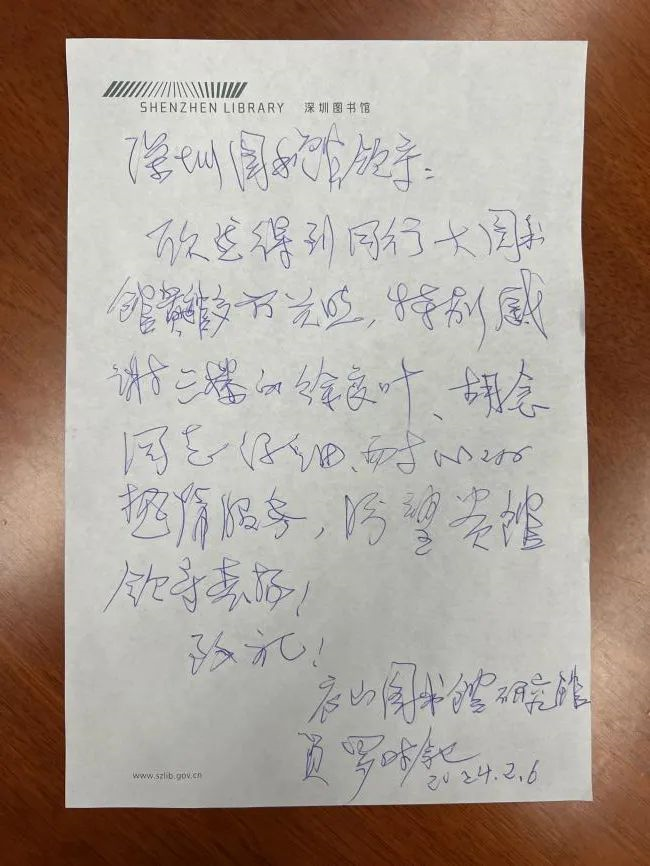 SHENZHEN LIBRARY 深圳图书馆
深圳图书馆领导:
欣然得到同行大图书
馆的关照,特别感
谢三楼的徐良叶、胡念
同志仔细、耐心
热情服务,盼望贵馆
领导表扬!
致礼!
唐山图书馆研究馆
员 罗时
2024.2.6
www.szlib.gov.cn